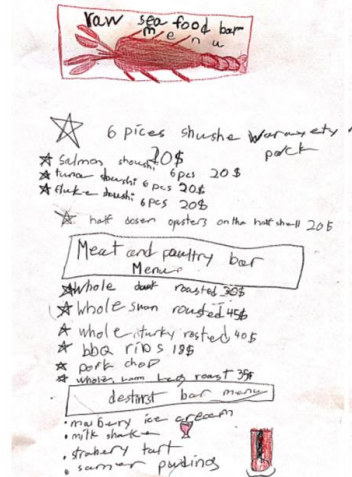 raw sea food bar
menu
6 pices shushe warayety
pack
salmon shoushi 20$
tuna soushi 6 pcs 20$
fluke soushi 6 pcs 20$
6 pcs 20$
half dosen oysters on the half shell 20$
Meat and paultry bar
Menu
whole duck roasted 30$
whole swan roasted 45$
whole turky rosted 40$
bbq ribs 18$
pork chop
whole ham leg roast 35$
destinst bar menu
mulbery ice cream
milk shake
strabery tart
samer puding